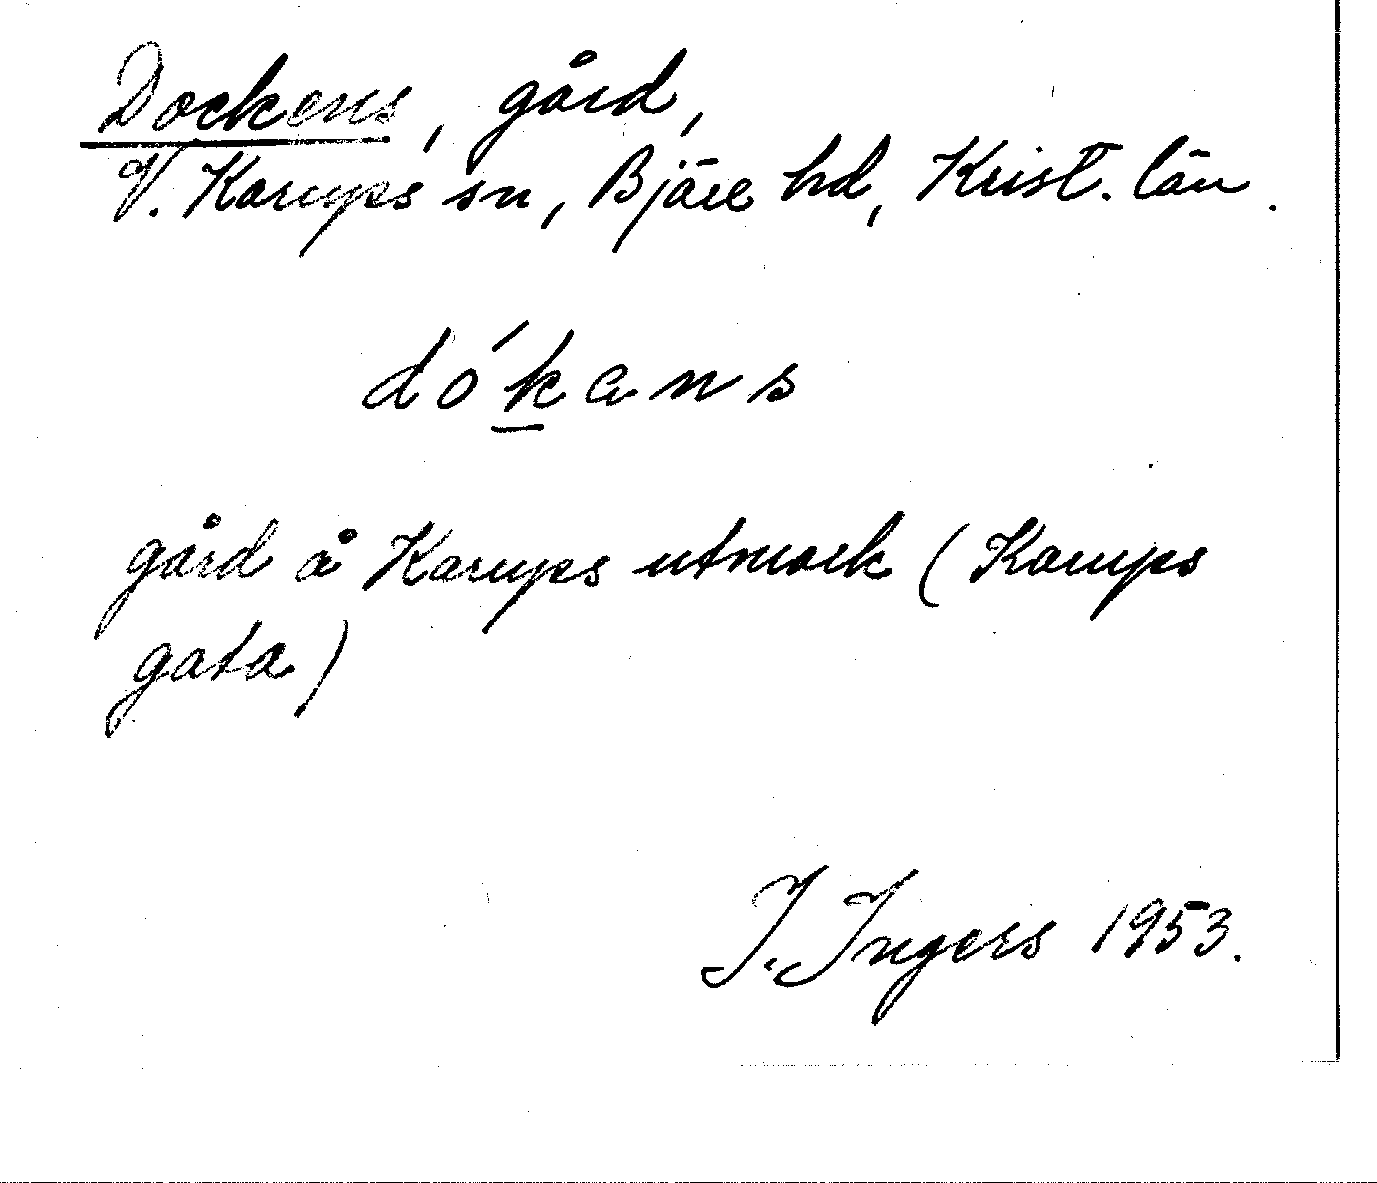 Dockens, gård,
V. Karups sn, Bjäre hd, Krist. län.
dókans
gård å Karups utmark (Karups
gata)
I. Ingers 1953.